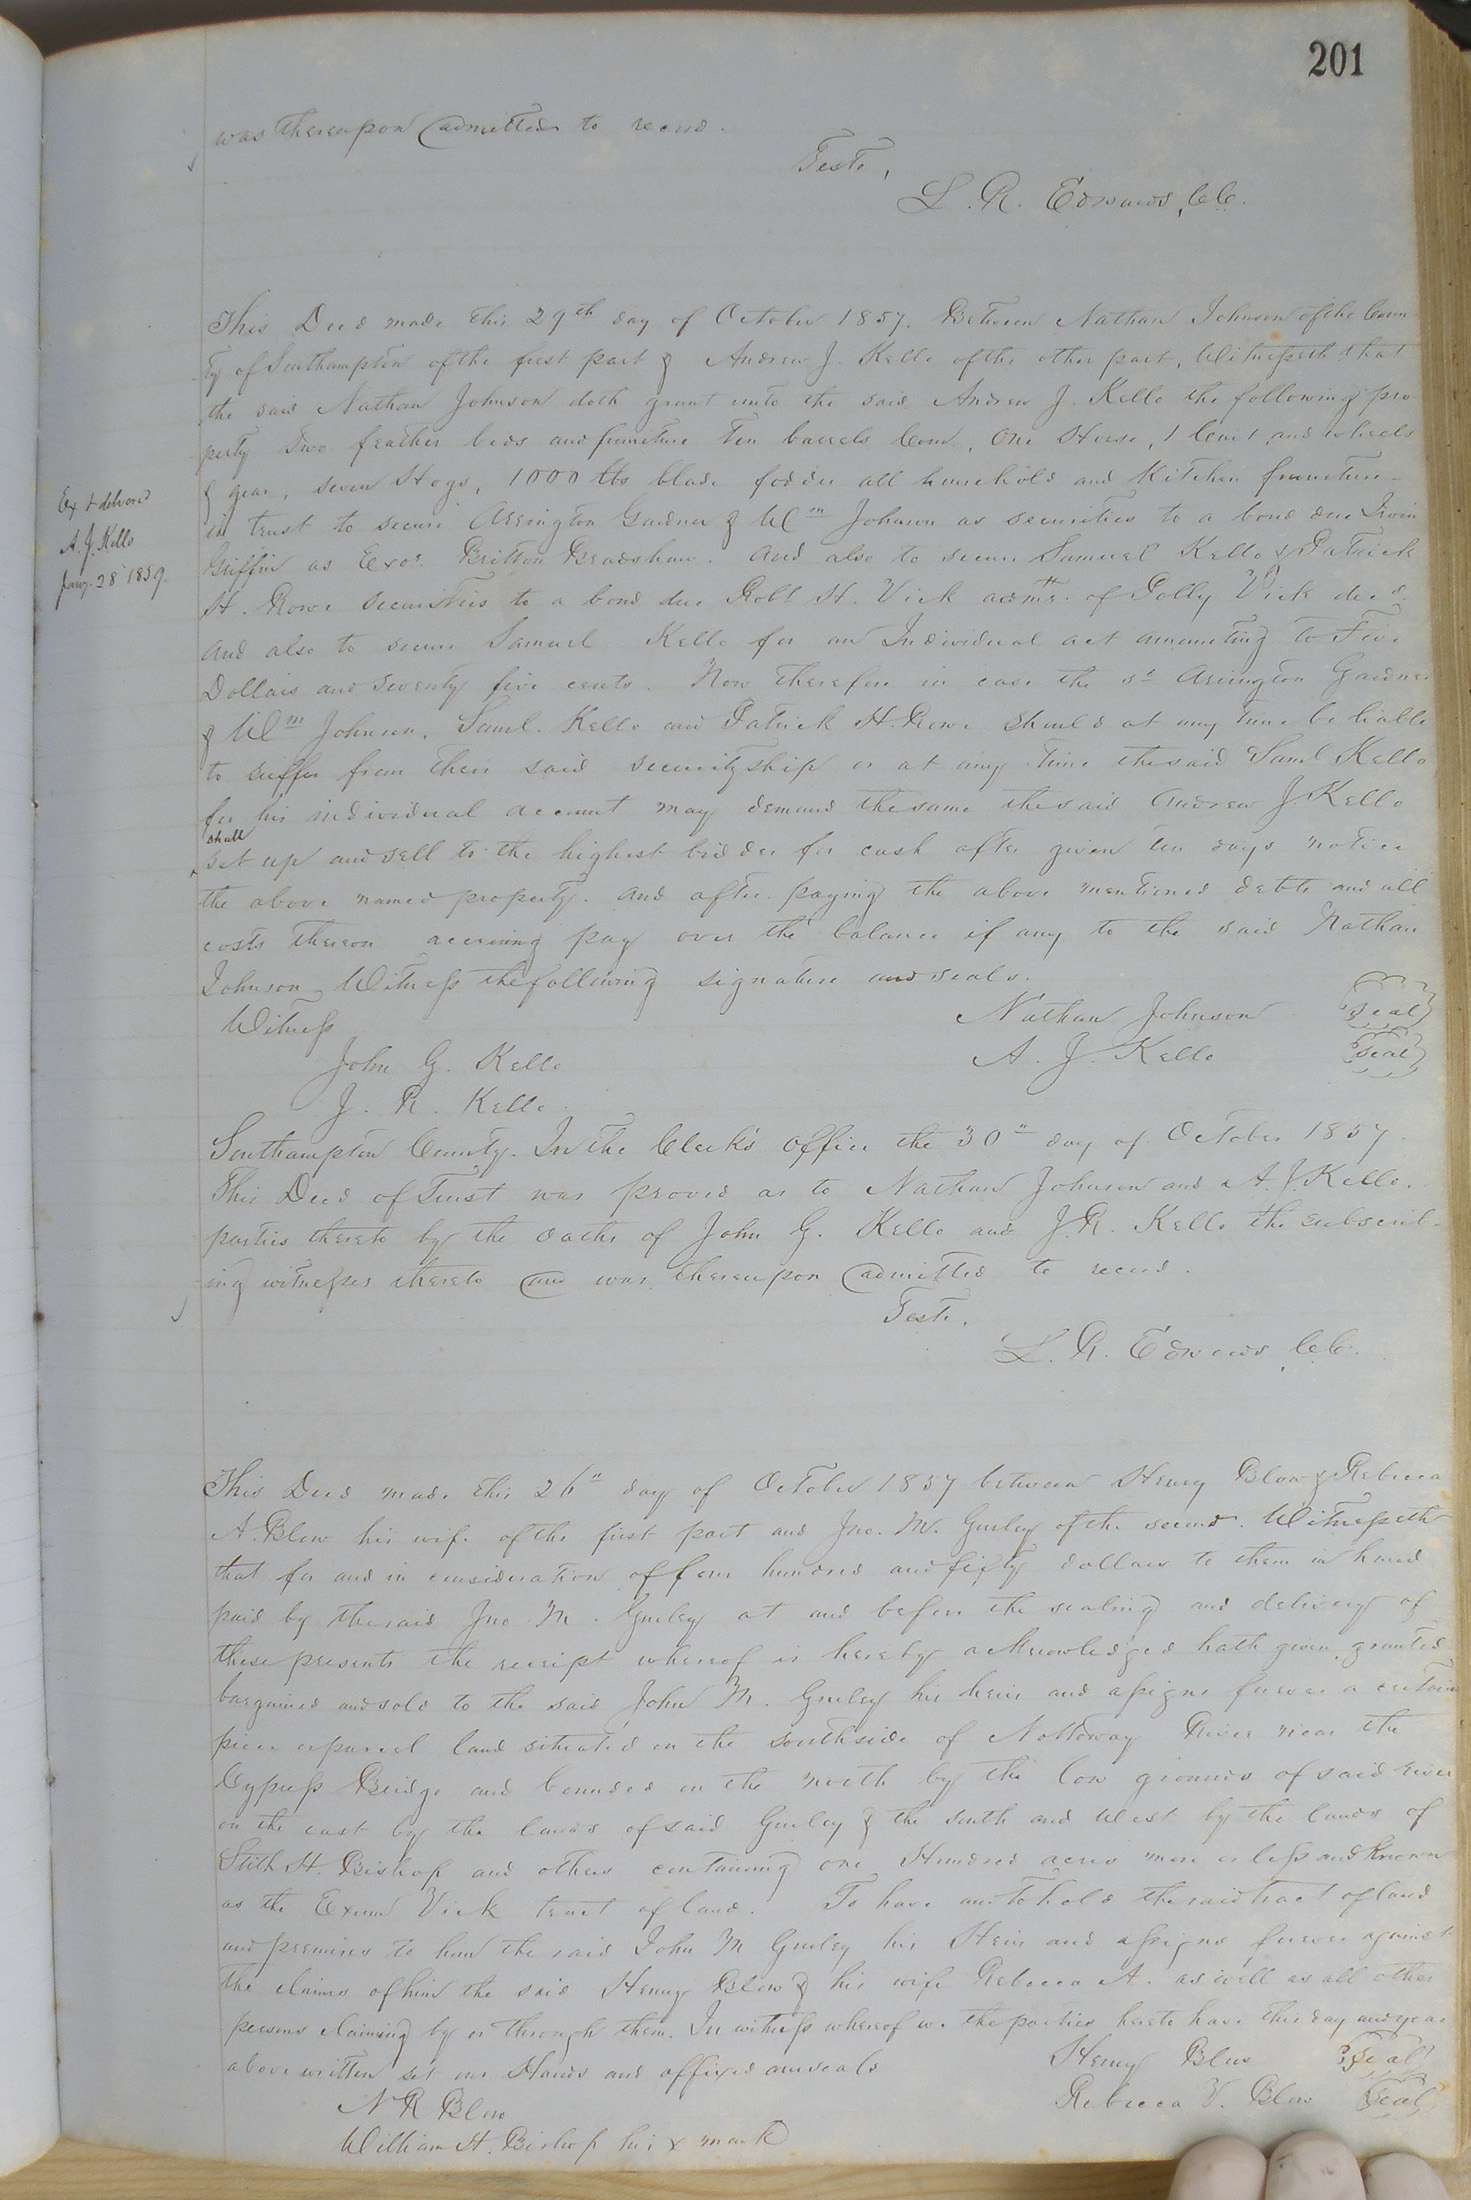 201
was thereupon admitted to record.
Teste,
L. R. Edwards, CC.
This Deed made this 29th day of October 1857. Between Nathan Johnson of the Coun-
ty of Southampton of the first part & Andrew J. Kello of the other part, Witnesseth that
the said Nathan Johnson doth grant unto the said Andrew J. Kello the following pro-
perty Two feather beds and furniture Ten barrels Corn, One Horse, 1 Cart and wheels
& gear, seven Hogs, 1000 lbs blade fodder all household and Kitchen furniture
in trust to secure Arrington Gardner & Wm Johnson as securities to a bond due
Griffin as Exor. Britton Bradshaw. And also to secure Samuel Kello & Patrick
H. Rowe securities to a bond due Robt H. Vick admr. of Polly Vick decd.
and also to secure Samuel Kello for an Individual act amounting to Five
Dollars and Seventy five cents. Now therefore in case the sd Arrington Gardner
& Wm Johnson, Saml. Kello and Patrick H. Rowe should at any time be liable
to suffer from their said securityship or at any time the said Saml Kello
for his individual account may demand the same the said Andrew J Kello
shall
set up and sell to the highest bidder for cash after given ten days notice
the above named property. And after paying the above mentioned debts and all
costs thereon accruing pay over the balance if any to the said Nathan
Johnson Witness the following signature and seals.
Witness
Nathan Johnson {Seal}
John G. Kello
A. J. Kello {Seal}
J. R. Kello
Ex & delivered
A. J. Kello
Jany. 28 1859.
Southampton County. In the Clerk's Office the 30" day of October 1857
This Deed of Trust was proved as to Nathan Johnson and A. J. Kello.
parties thereto by the oaths of John G. Kello and J. R. Kello the subscrib-
ing witnesses thereto and was thereupon admitted to record.
Teste.
L. R. Edwards, CC.
This Deed made this 26" day of October 1857 between Henry Blow & Rebecca
A. Blow his wife of the first part and Jno. M. Gurley of the second. Witnesseth
that for and in consideration of four hundred and fifty dollars to them in hand
paid by the said Jno M. Gurley at and before the sealing and delivery of
these presents the receipt whereof is hereby acknowledged hath given, granted
bargained and sold to the said John M. Gurley his heirs and assigns forever a certain
piece or parcel land situated on the south side of Nottoway River near the
Cypress Bridge and bounded on the north by the low grounds of said river
on the east by the lands of said Gurley & the south and West by the lands of
Stith H. Bishop and others containing one Hundred acres more or less and known
as the Exum Vick tract of land. To have and To hold the said tract of land
and premises to him the said John M Gurley his Heirs and assigns forever against
the claims of him the said Henry Blow & his wife Rebecca A. as well as all other
persons claiming by or through them. In witness whereof we the parties hereto have this day and year
above written set our Hands and affixed our seals
Henry Blow {Seal}
N R Blow
Rebecca V. Blow {Seal}
William H. Bishop his x mark